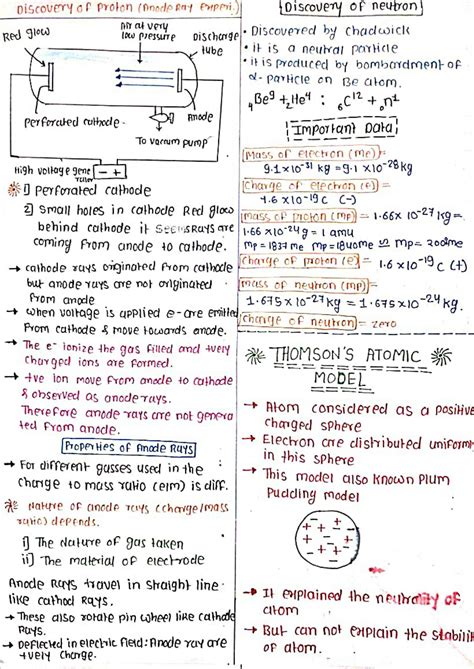 Discovery of Proton (Anode Ray Experi.)
Air at very
low pressure
Red glow
Discharge
tube
Perforated cathode
Anode
To vacum pump
High voltage gene
rator
- +
1) Perforated cathode
2) Small holes in cathode Red glow
behind cathode it seems rays are
coming from anode to cathode.
→ cathode rays originated from cathode
but anode rays are not originated
from anode
→ when voltage is applied e- are emitted
from cathode & move towards anode.
→ The e- ionize the gas filled and +vely
charged ions are formed.
→ +ve ion move from anode to cathode
& observed as anode rays.
Therefore anode rays are not genera
ted from anode.
Properties of Anode Rays
→ For different gasses used in the
charge to mass ratio (e/m) is diff.
Nature of anode rays (charge/mass
ratio) depends.
i) The nature of gas taken
ii) The material of electrode
Anode Rays travel in straight line
like cathod Rays.
→ These also rotate pin wheel like cathode
Rays.
→ Deflected in electric field: Anode ray are
+vely charge.
Discovery of neutron
• Discovered by chadwick
• it is a neutral particle
• it is produced by bombardment of
α-particle on Be atom.
4Be9 + 2He4 : 6C12 + 0n1
Important Data
Mass of electron (me)=
9.1×10-31 kg = 9.1×10-28 kg
Charge of electron (e)=
1.6×10-19 c (-)
mass of proton (mp) = 1.66×10-27 kg =
1.66×10-24 g = 1 amu
mp = 1837 me mp = 1840me mp=
Charge of proton (e) = 1.6×10-19 c (+)
mass of neutron (mp)=
1.675×10-27 kg = 1.675×10-24 kg.
Charge of neutron = zero
THOMSON'S ATOMIC
MODEL
→ Atom considered as a positive
charged sphere
→ Electron are distributed uniform
in this sphere
→ This model also known Plum
Pudding model
→ It explained the neutrality of
atom
→ But can not explain the stabili
of atom.